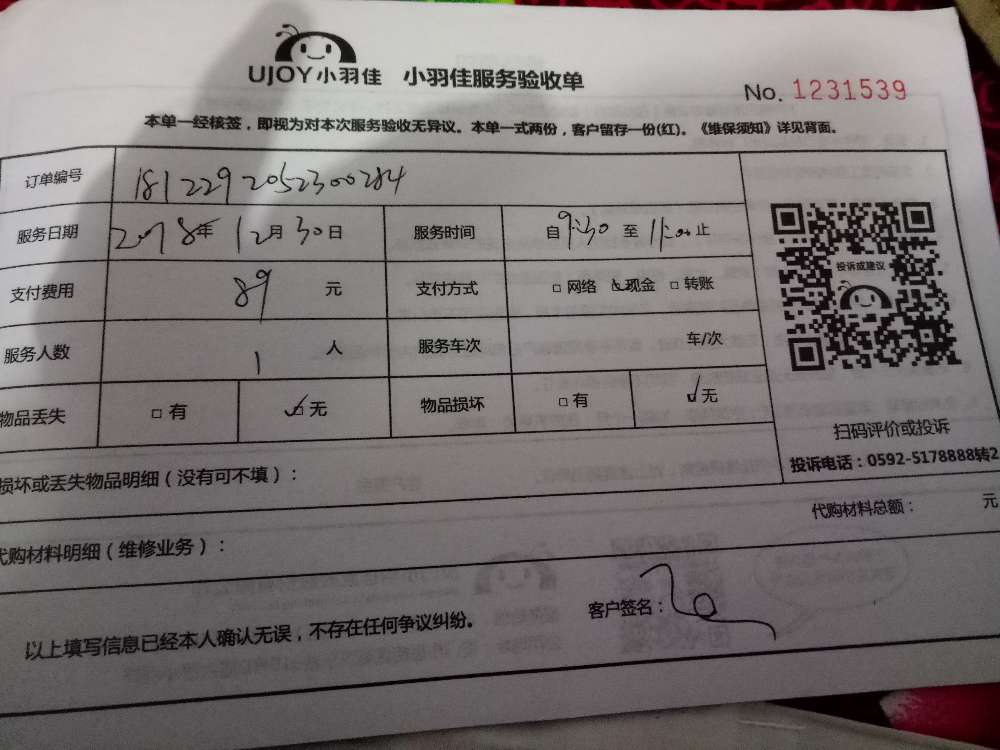 UJOY小羽佳 小羽佳服务验收单
No. 1231539
本单一经核签，即视为对本次服务验收无异议。本单一式两份，客户留存一份(红)。《维保须知》详见背面。
订单编号 1812292052300284
服务日期 2018年 12月 30日 服务时间 自 9:30 至 11:00 止
支付费用 89 元 支付方式 □网络 ☑现金 □转账
投诉或建议
服务人数 1 人 服务车次 车/次
物品丢失 □有 ☑无 物品损坏 □有 ☑无
扫码评价或投诉
投诉电话：0592-5178888转2
损坏或丢失物品明细（没有可不填）：
代购材料总额： 元
代购材料明细（维修业务）：
以上填写信息已经本人确认无误，不存在任何争议纠纷。 客户签名：